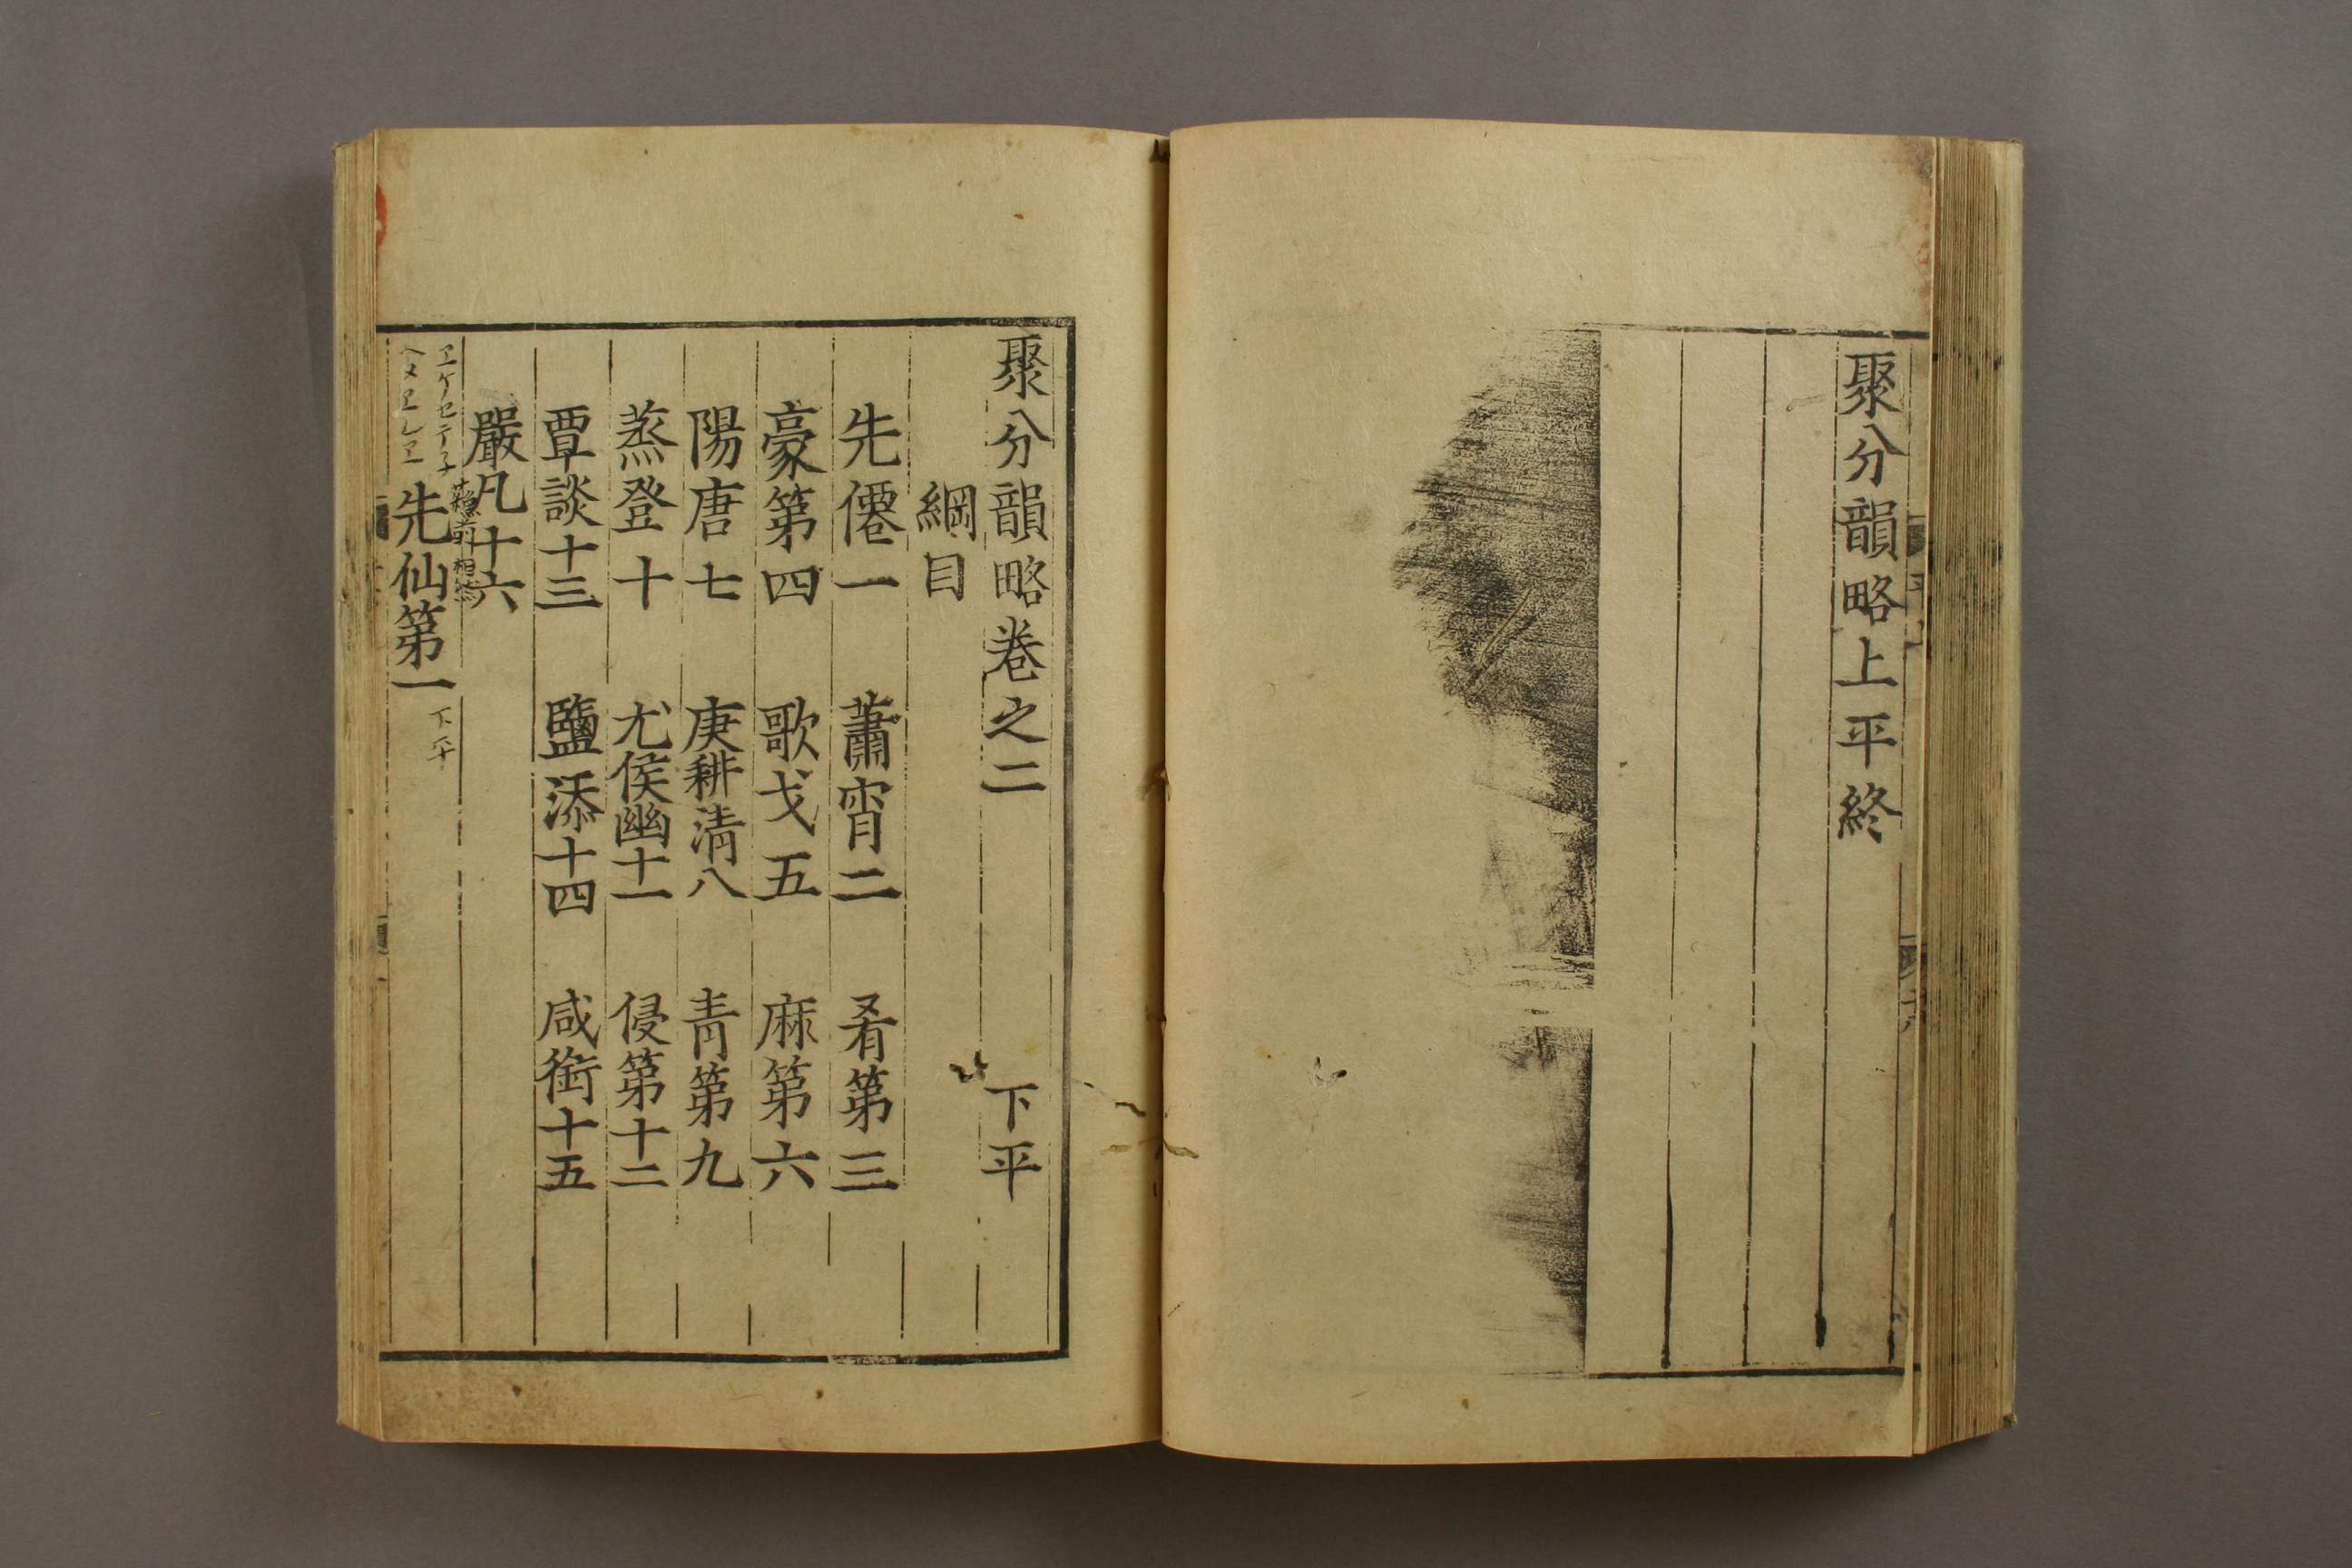 聚分韻略上平終
聚分韻略卷之二 下平
綱目
先僊一 蕭宵二 肴第三
豪第四 歌戈五 麻第六
陽唐七 庚耕清八 青第九
蒸登十 尤侯幽十一 侵第十二
覃談十三 鹽添十四 咸銜十五
嚴凡十六
先仙第一
下平